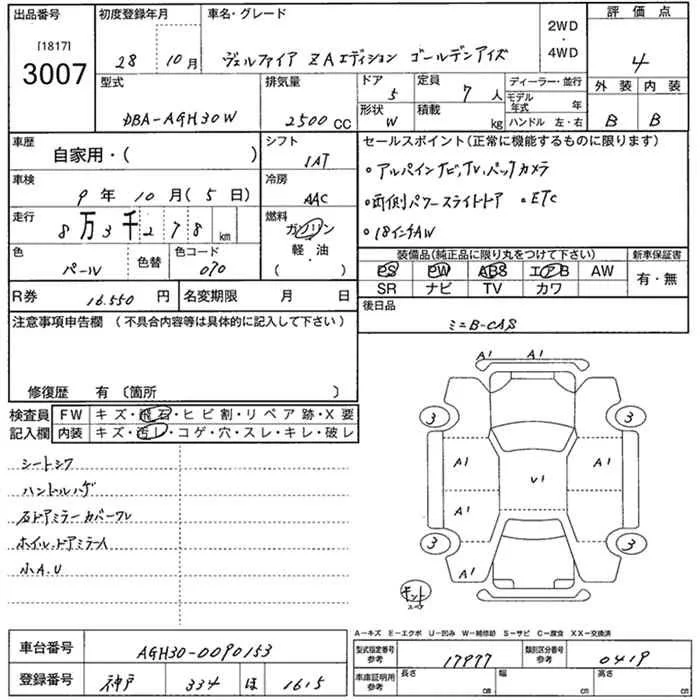 出品番号 初度登録年月 車名・グレード 評価点
[1817]
3007
28 10月 ヴェルファイア ZAエディション ゴールデンアイズ 2WD・4WD 4
型式 排気量 ドア 5 定員 7人 ディーラー・並行 外装 内装
DBA-AGH30W 2500CC 形状 W 積載 kg モデル年式 年 ハンドル 左・右 B B
車歴 シフト セールスポイント(正常に機能するものに限ります)
自家用・( ) IAT ・アルパインナビ,TV,バックカメラ
車検 冷房
9年10月(5日) AAC ・両側パワースライドドア ・ETC
走行 燃料
8万3千278km ガソリン ・18インチAW
軽・油
( )
色 色替 色コード 装備品(純正品に限り丸をつけて下さい) 新車保証書
パール 070 PS PW ABS エアB AW 有・無
SR ナビ TV カワ
R券 16.550円 名変期限 月 日 後日品
ミニB-CAS
注意事項申告欄 (不具合内容等は具体的に記入して下さい)
修復歴 有 〔箇所 〕
検査員 FW キズ・飛石・ヒビ割・リペア跡・X要
記入欄 内装 キズ・汚レ・コゲ・穴・スレ・キレ・破レ
シートシワ
ハンドルハゲ
右ドアミラーカバーワレ
ホイル、ドアミラーA
小A.U
A1 A1
3 3
A1 U1 A1
A1
3 3
A1
A−キズ E−エクボ U−凹み W−補修跡 S−サビ C−腐食 XX−交換済
車台番号 AGH30-0090153 型式指定番号 参考 17977 類別区分番号 参考 0419
登録番号 神戸 334 ほ 1615 車庫証明用 参考 長さ cm 幅 cm 高さ cm